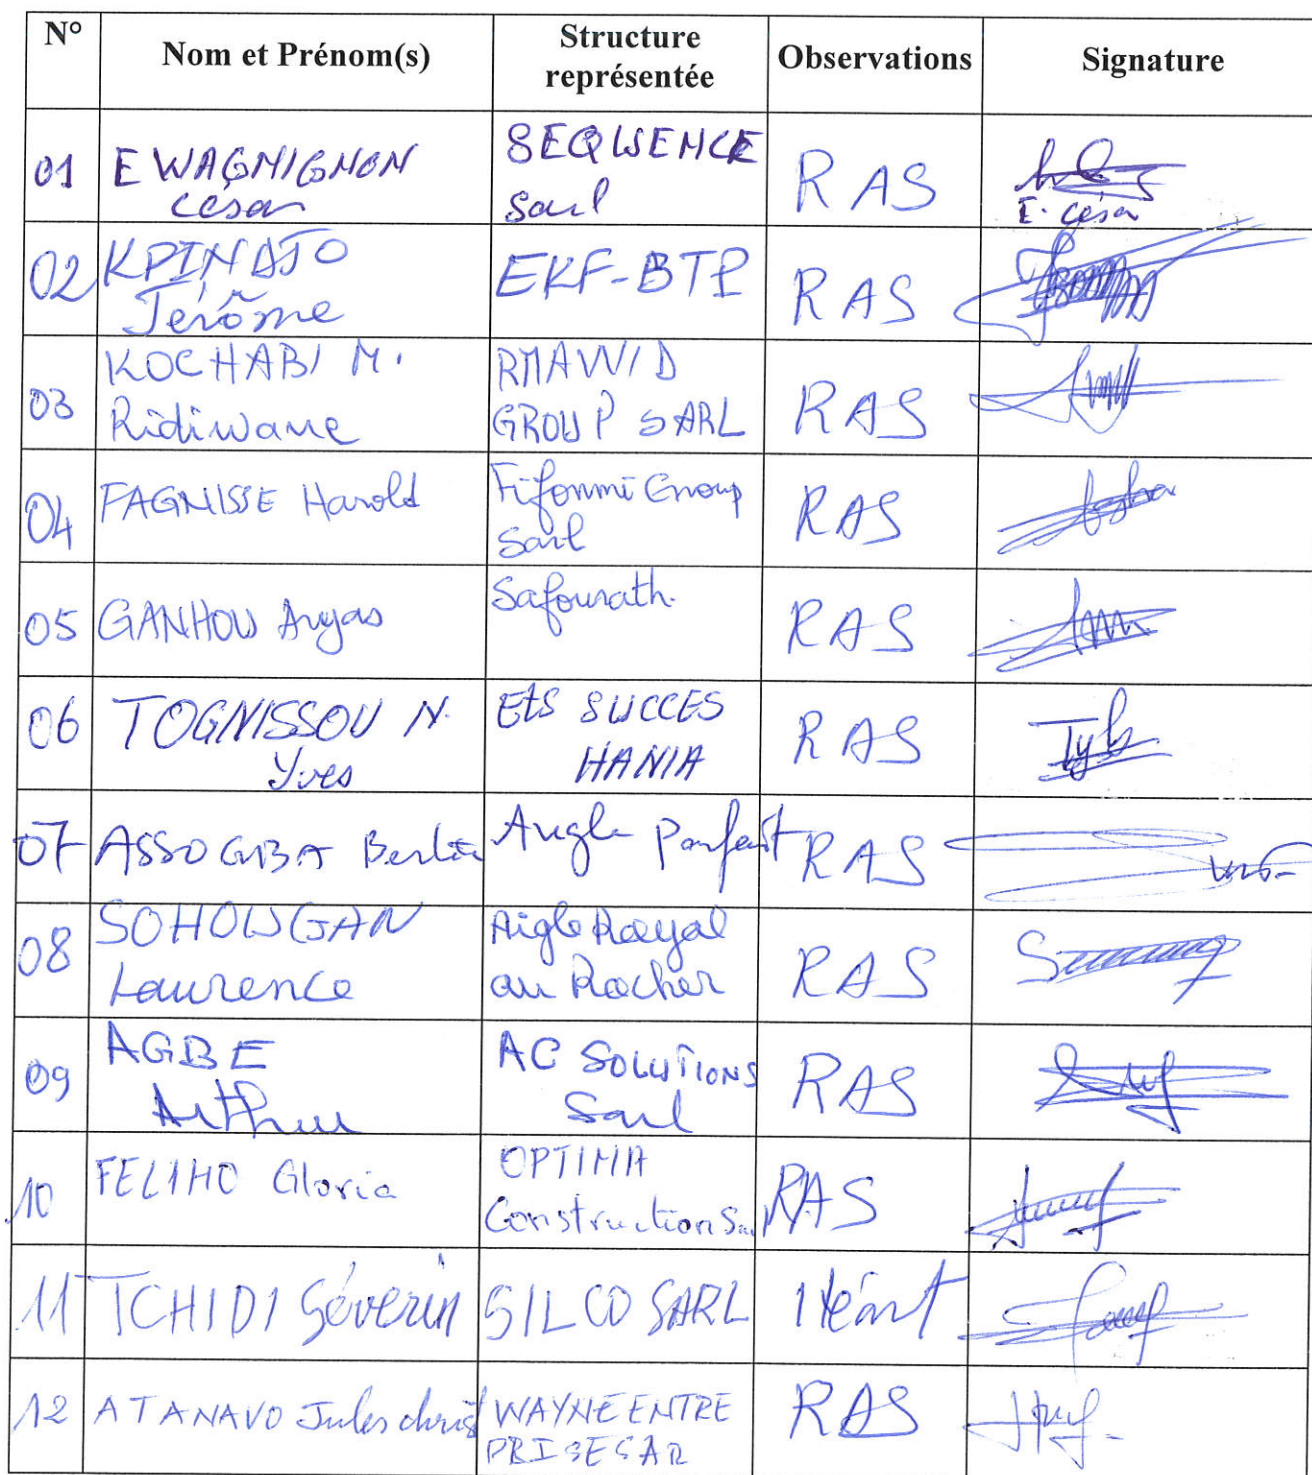 N° Nom et Prénom(s) Structure représentée Observations Signature
01 EWAGNIGNON César SEQUENCE Sarl RAS E. César
02 KPINDJO Jérôme EKF-BTP RAS
03 KOCHABI M. Ridiwane RMAVVID GROUP SARL RAS
04 FAGNISSE Harold Fifonmi Group Sarl RAS
05 GANHOU Argas Safourath. RAS
06 TOGNISSOU N. Yves Ets SUCCES HANIA RAS
07 ASSOGBA Angle Parfait RAS
08 SOHOUGAN Laurence Aigle Royal au Rocher RAS
09 AGBE Arthur AC SOLUTIONS Sarl RAS
10 FELIHO Gloria OPTIMA Construction RAS
11 TCHIDI Séverin SILCO SARL Néant
12 ATANAVO Jules christ WAYNE ENTRE PRISE SAR RAS